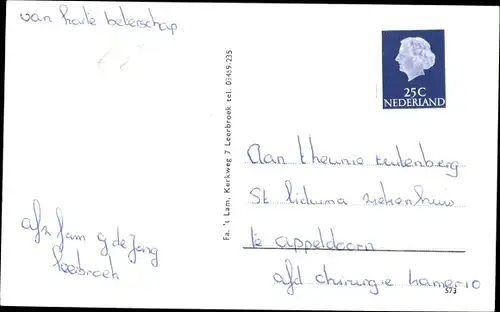 van harte beterschap.
25C
NEDERLAND
Fa. 't Lam, Kerkweg 7 Leerbroek tel. 03459-235
Aan theunie
St liduina ziekenhuis
te appeldoorn
afd chirurgie kamer 10
afz fam g de Jong
leerbroek
573